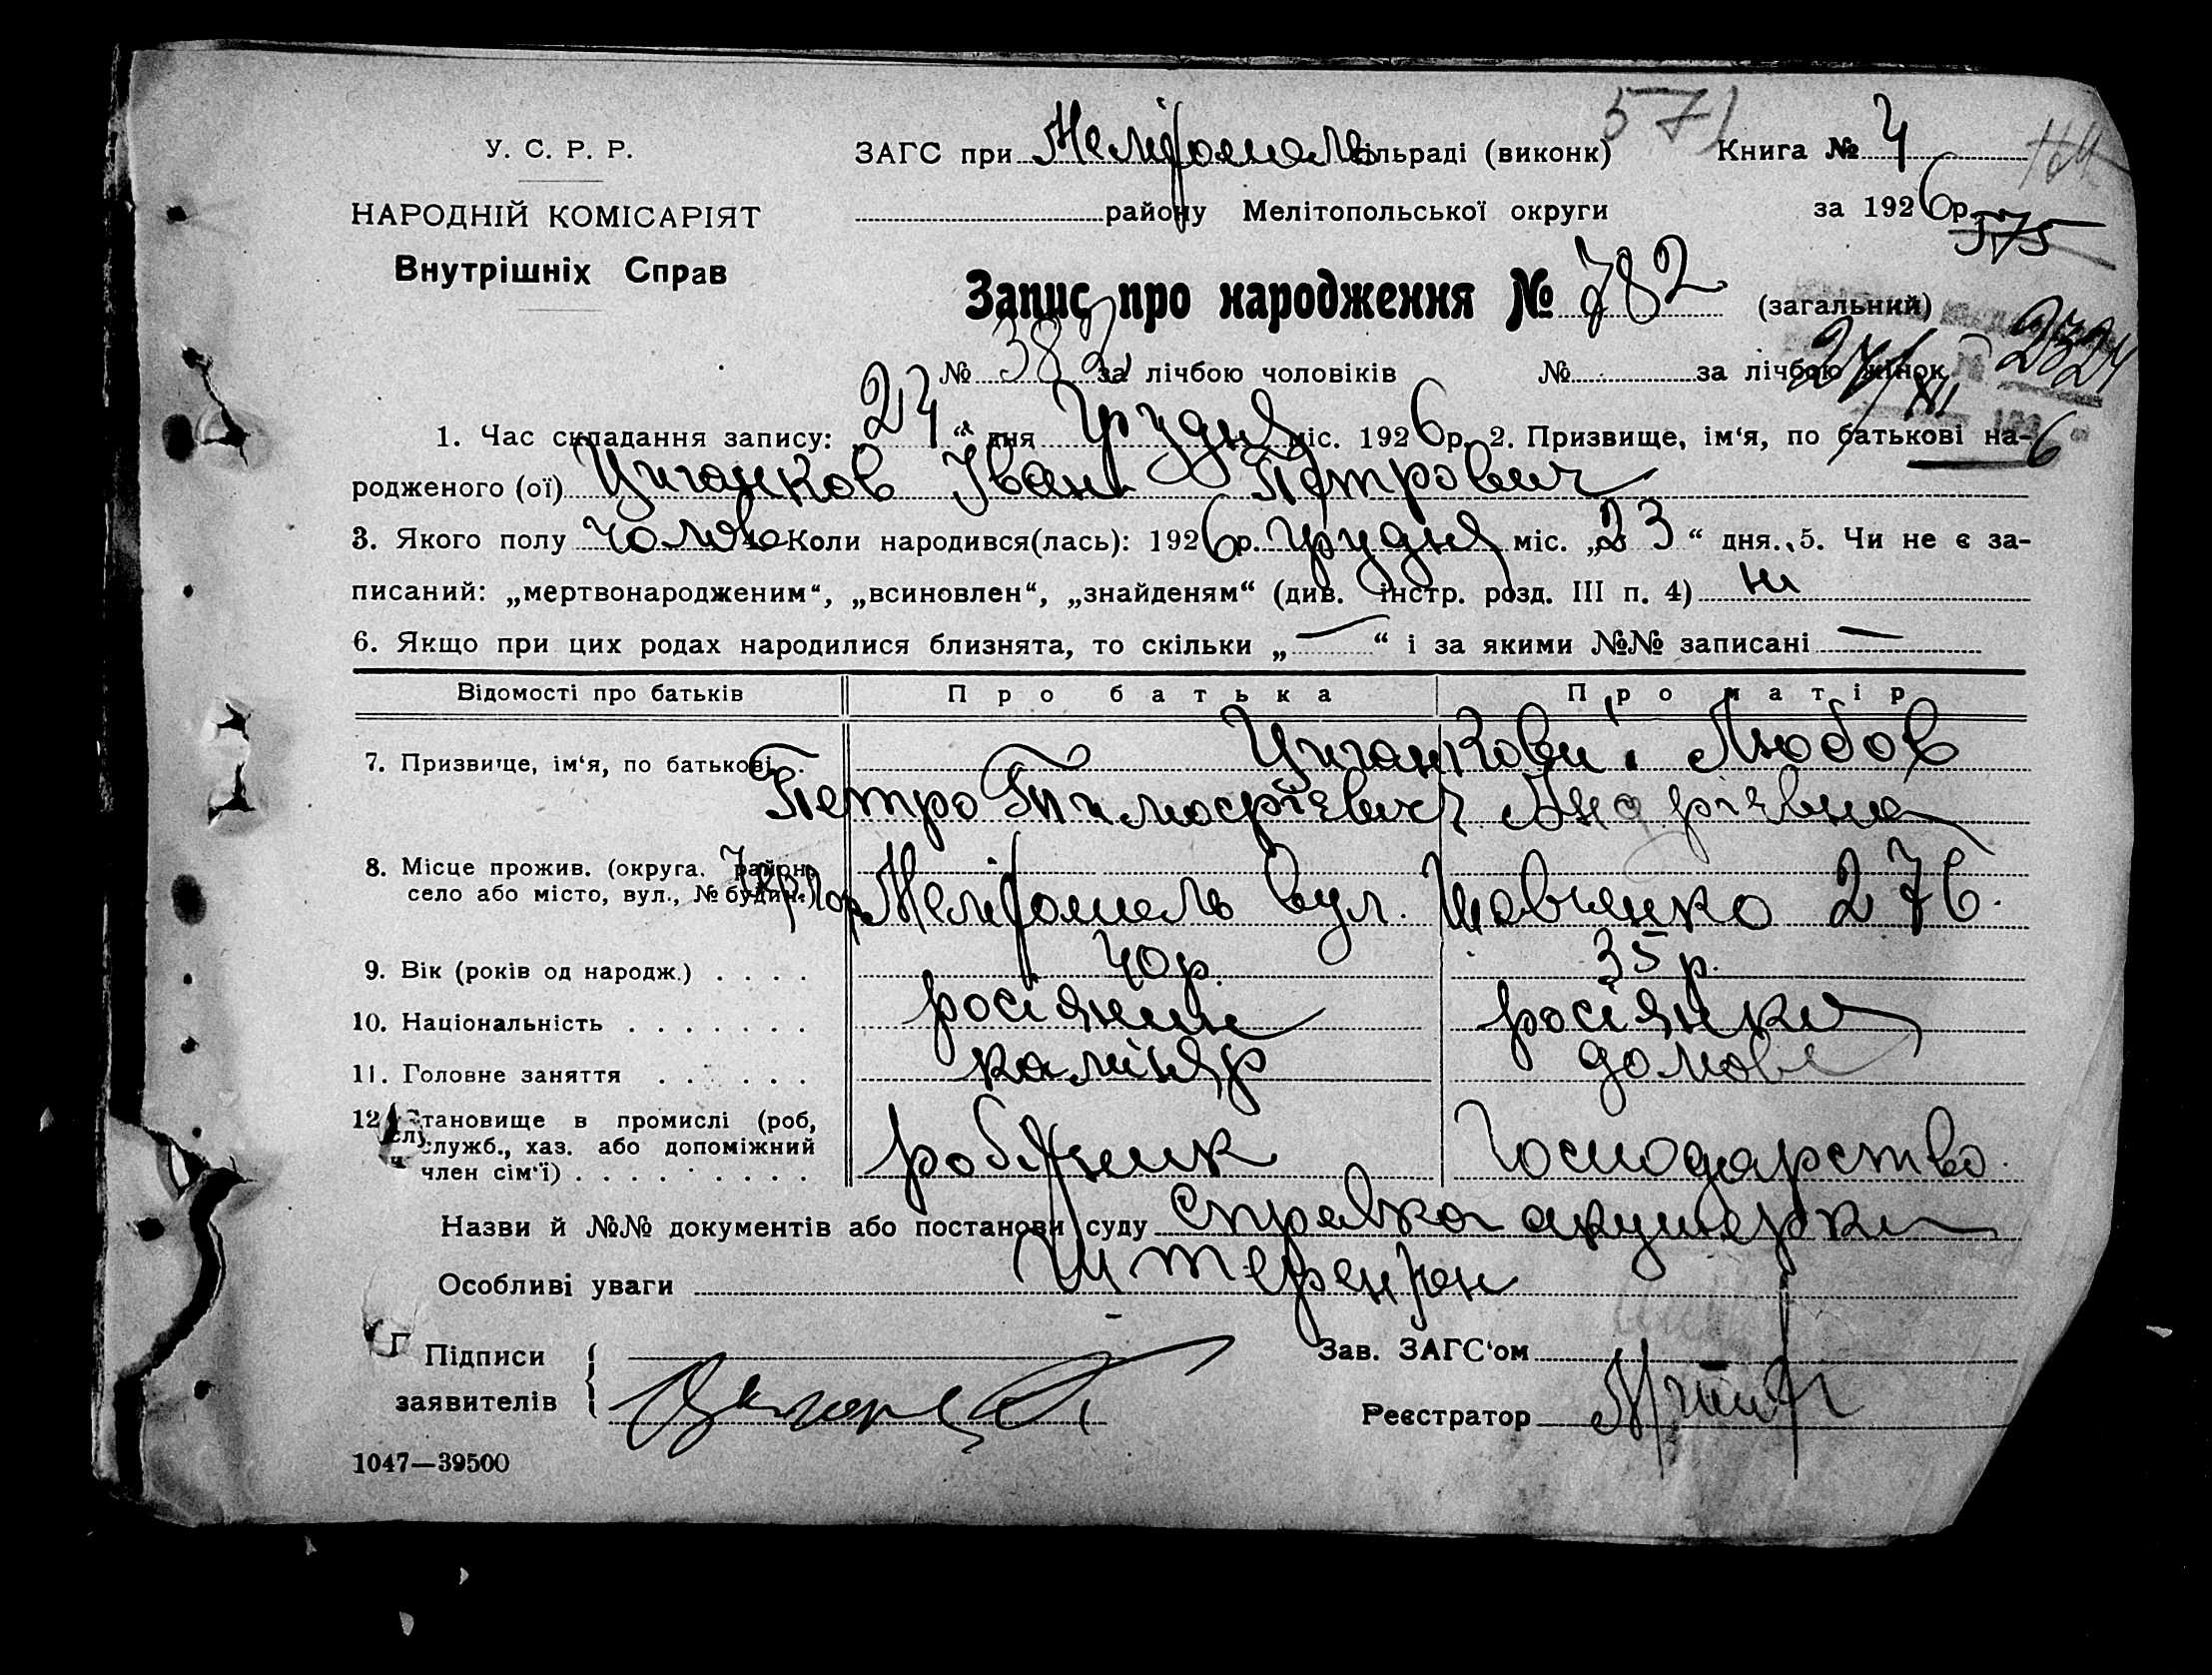 571
У. С. Р. Р.
ЗАГС при Мелітополь сільраді (виконк)
Книга № 4
НАРОДНІЙ КОМІСАРІЯТ
району Мелітопольської округи
за 1926 р.
575
Внутрішніх Справ
Запис про народження № 782 (загальний)
№ 382 за лічбою чоловіків № за лічбою жінок
2324
27/XII
6
1. Час складання запису: 24 “ дня Грудня міс. 1926 р. 2. Призвище, ім‘я, по батькові на-
родженого (ої) Циганков Іван Петрович
3. Якого полу чолов 4. Коли народився(лась): 1926 р. Грудня міс. „23“ дня. 5. Чи не є за-
писаний: „мертвонародженим“, „всиновлен“, „знайденям“ (див. інстр. розд. III п. 4) ні
6. Якщо при цих родах народилися близнята, то скільки „—“ і за якими №№ записані —
Відомості про батьків Про батька Про матір
7. Призвище, ім‘я, по батькові Циганкови: Любов
Петро Тимофієвич Андріївна
8. Місце прожив. (округа. район,
село або місто, вул., № будин.) Мелітополь вул. Шевченко 276.
9. Вік (років од народж.) 40 р. 35 р.
10. Національність росіянин росіянка
11. Головне заняття каміняр домове
12. Становище в промислі (роб,
служб., хаз. або допоміжний
член сім‘ї) робітник господарство.
Назви й №№ документів або постанови суду Справка акушерки
Особливі уваги Штеренгон
Підписи
заявителів
Зав. ЗАГС‘ом
Реєстратор
1047—39500